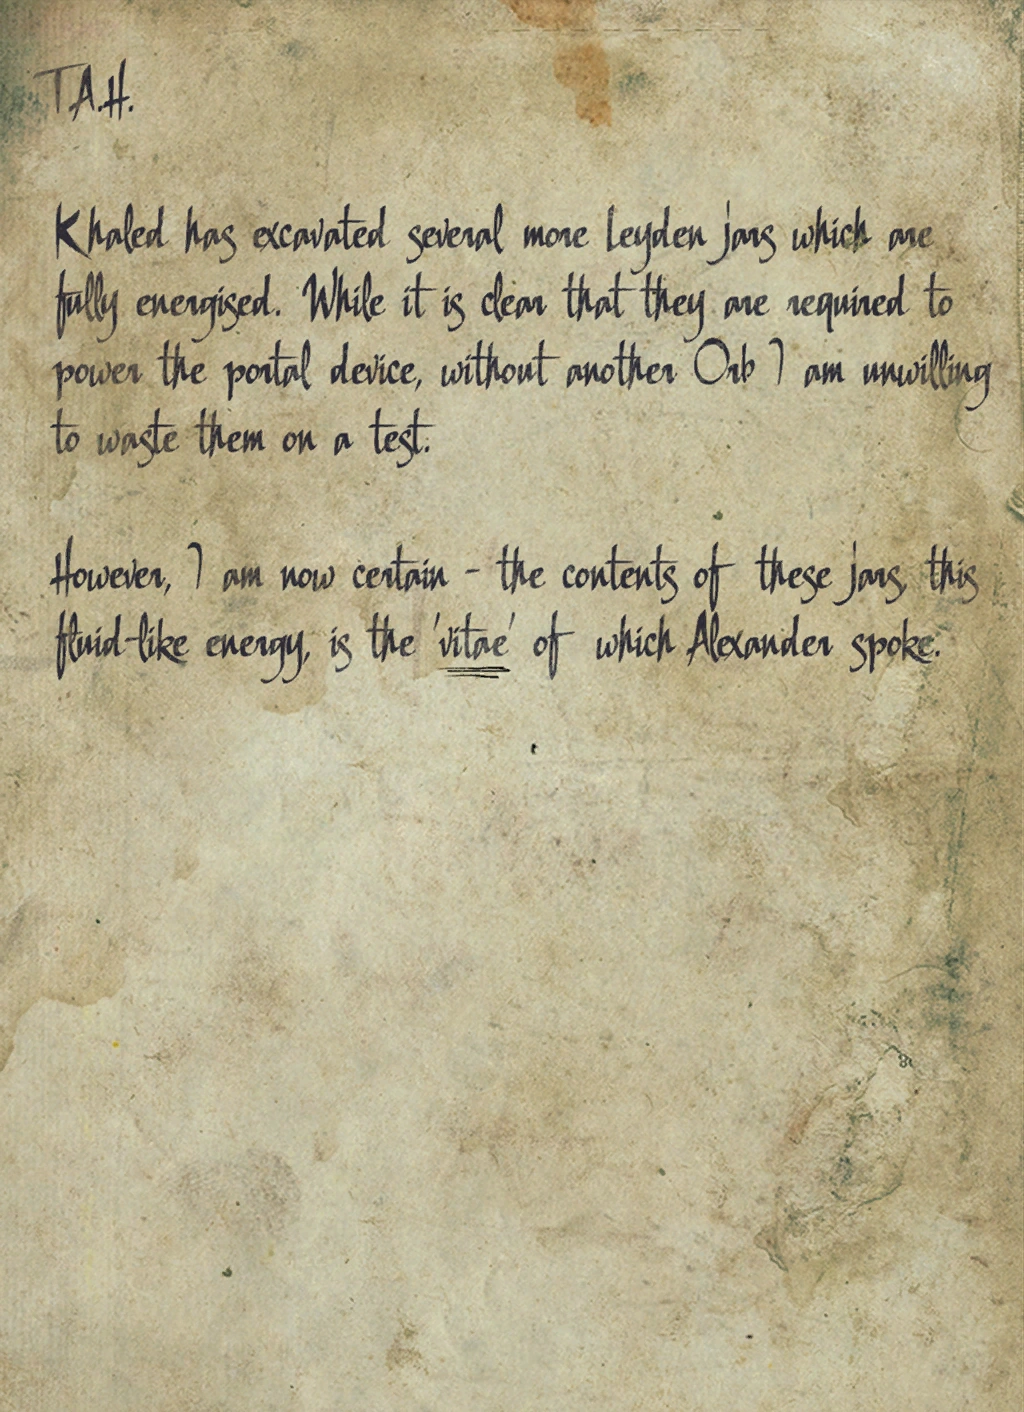 T.A.H.
Khaled has excavated several more Leyden jars which are
fully energised. While it is clear that they are required to
power the portal device, without another Orb I am unwilling
to waste them on a test.
However, I am now certain - the contents of these jars, this
fluid-like energy, is the 'vitae' of which Alexander spoke.